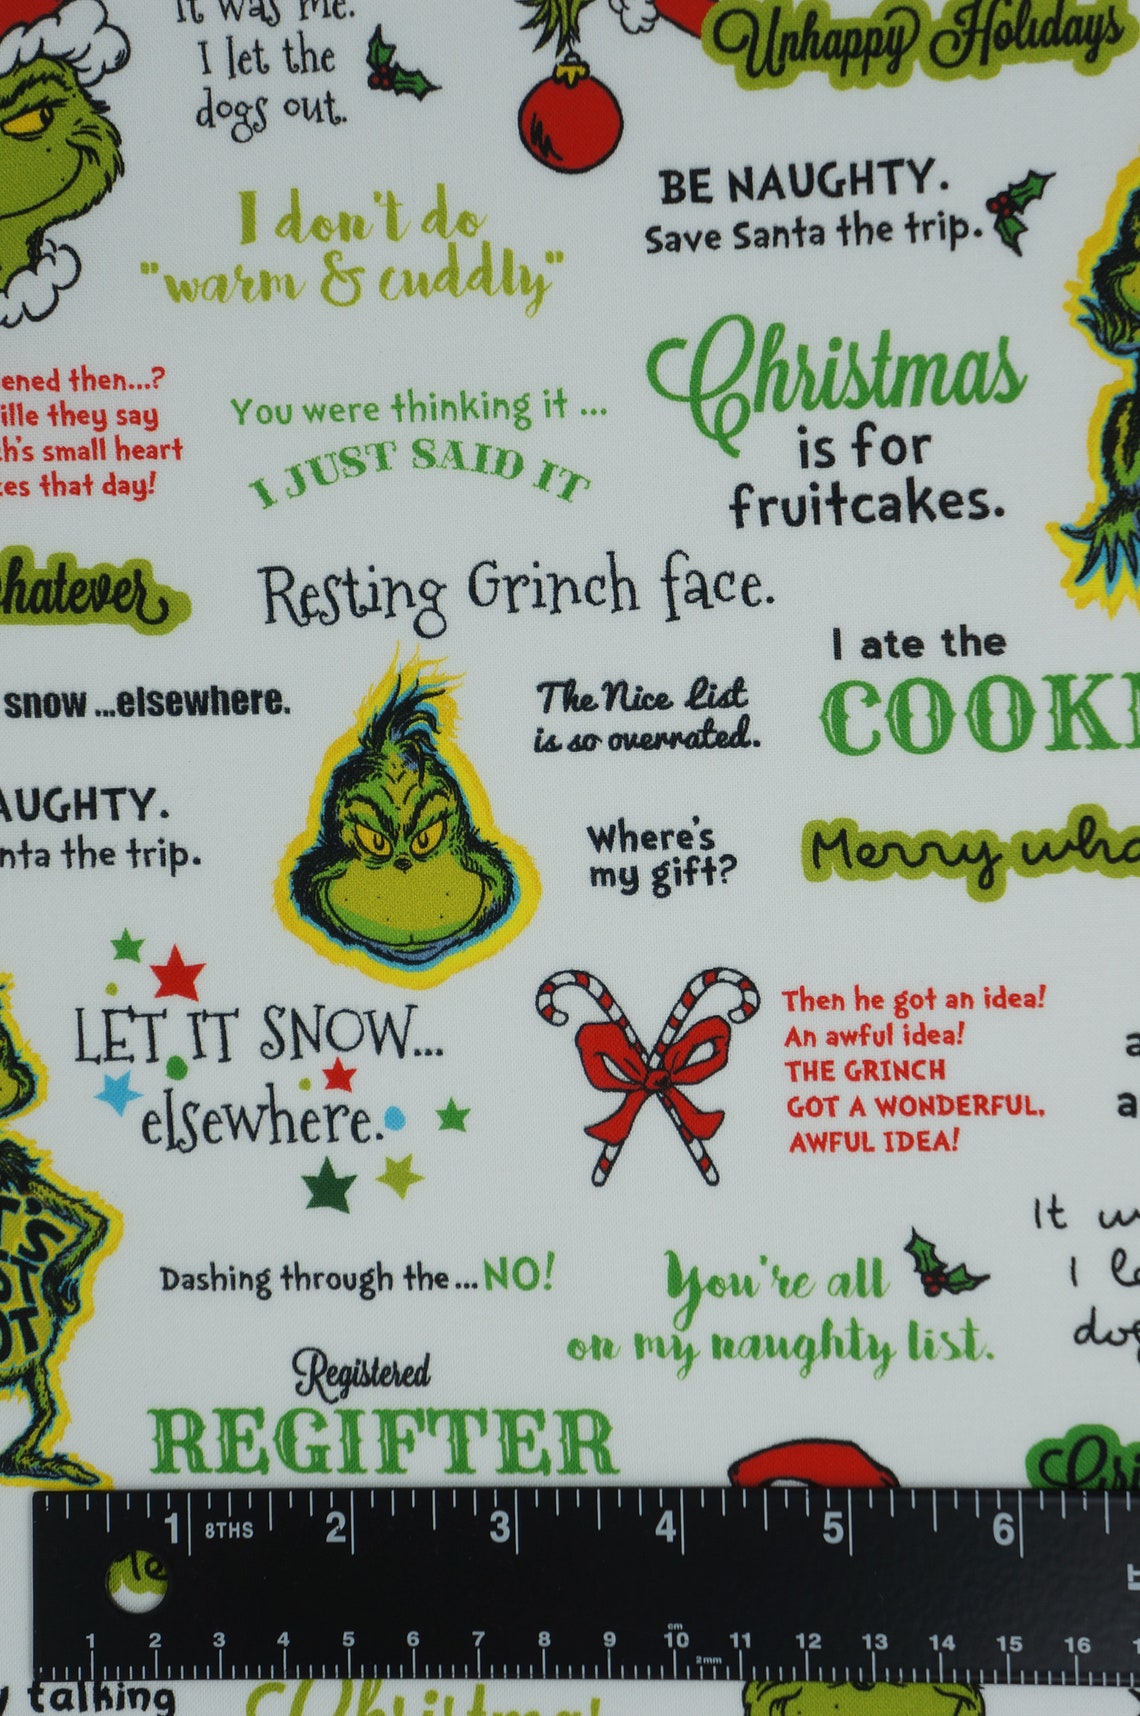 It was me.
I let the
dogs out.
Unhappy Holidays
BE NAUGHTY.
Save Santa the trip.
I don't do
"warm & cuddly"
Christmas
is for
fruitcakes.
ened then...?
ille they say
h's small heart
es that day!
You were thinking it ...
I JUST SAID IT
hatever
Resting Grinch face.
I ate the
COOKI
snow ...elsewhere.
The Nice List
is so overrated.
AUGHTY.
nta the trip.
Where's
my gift?
Merry wha
LET IT SNOW...
elsewhere.
Then he got an idea!
An awful idea!
THE GRINCH
GOT A WONDERFUL,
AWFUL IDEA!
a
a
It w
I le
dog
Dashing through the ... NO!
You're all
on my naughty list.
Registered
REGIFTER
Chri
1 8THS 2 3 4 5 6
cm
1 2 3 4 5 6 7 8 9 10 11 12 13 14 15 16
2mm
y talking
Christmas